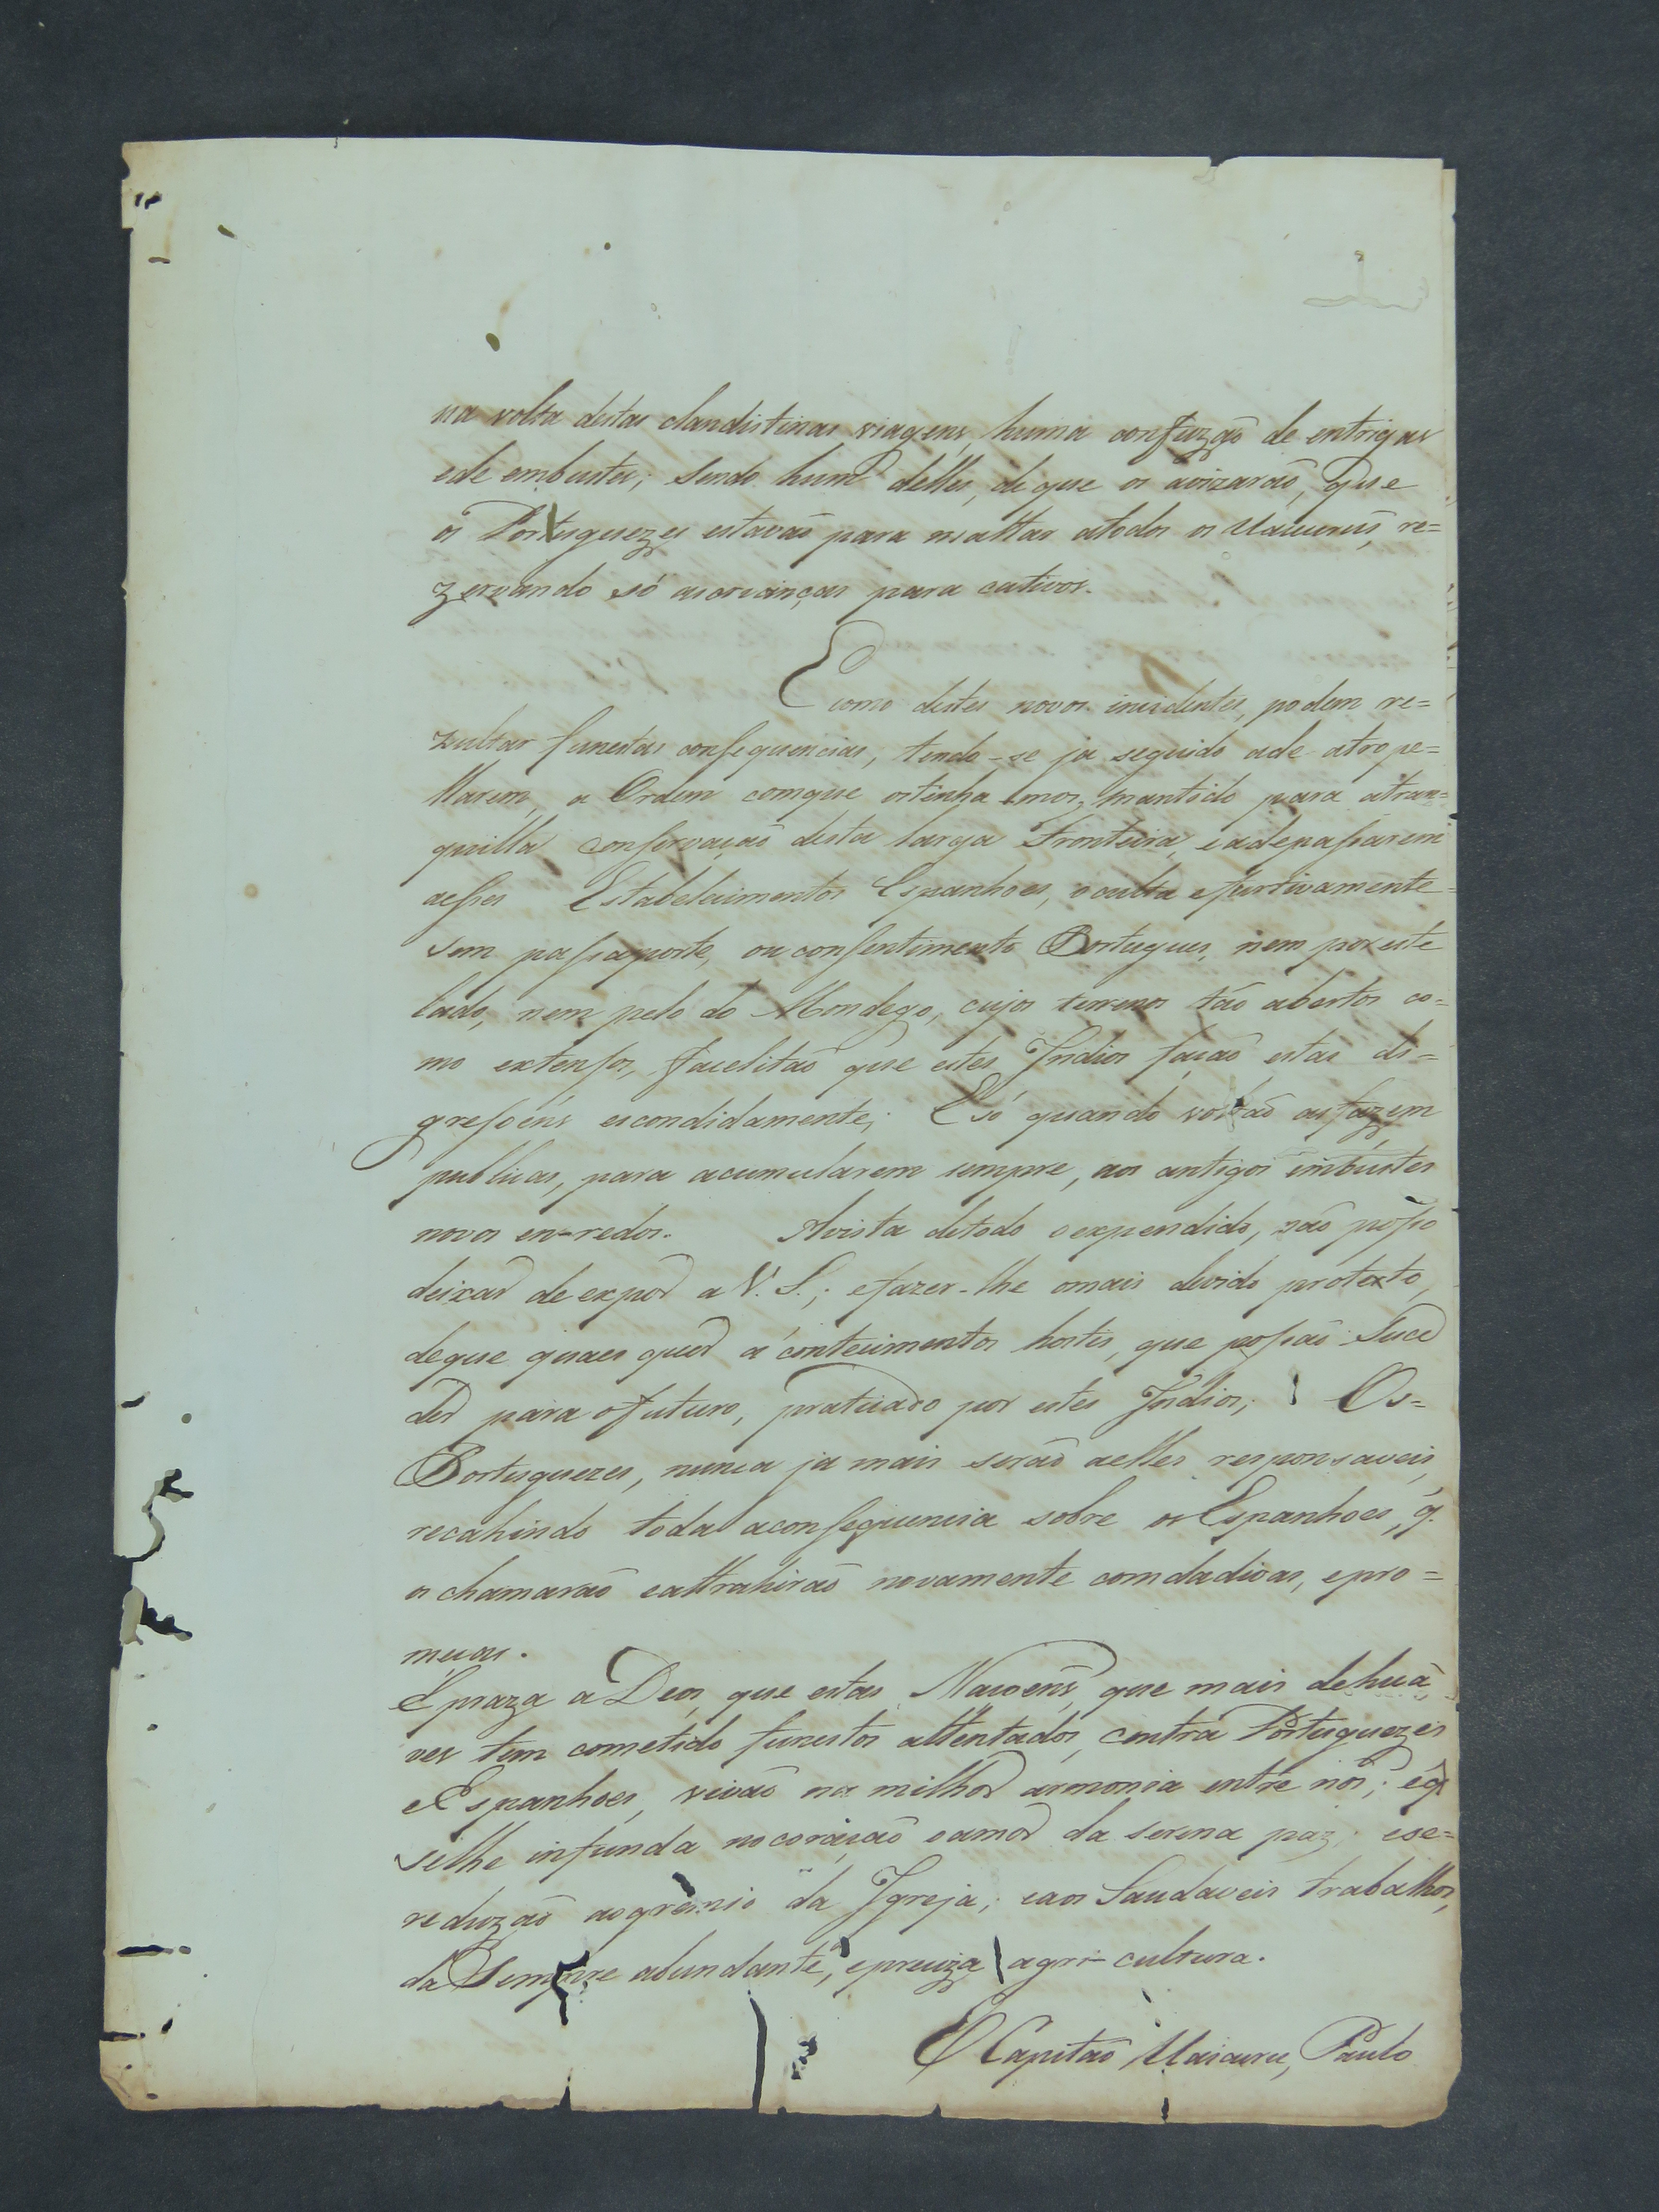 na volta destas clandistinas viagens, huma confuzaõ de entrigas
e de embustes; sendo hum delles, de que os avizaraõ, que
os Portuguezes estavaõ para mattar atodos os Uaicurús, re=
zervando só as crianças para cativos.
E como destes novos incidentes, podem re=
zultar funestas consequencias, tendo-se ja seguido ade atrope=
llarem, a Ordem comque ostinha-mos, mantido para atran=
quilla conservaçaõ desta larga Fronteira, eadepassarem
aesses Estabelecimentos Espanhoes, oculta efurtivamente=
sem passaporte, ou consentimento Portugues, nem poreste
lado, nem pelo do Mondego, cujos terrenos taõ abertos co=
mo extensos, facelitaõ que estes Indios façaõ estas di=
gressoéns escondidamente; E só quando voltaõ asfazem
publicas, para acumularem sempre, aos antigos imbustes
novos en-redos. Avista detodo oexpendido, naõ posso
deixar de expor a V. S.; efazer-lhe omais devido protexto,
deque quaes quer acontecimentos hostis, que possaõ Suce
der para ofuturo, praticado por estes Indios; Os=
Portuguezes, nunca ja mais seraõ aelles responsaveis,
recahindo toda aconsequencia sobre os Espanhoes, q.
os chamaraõ eattrahiraõ novamente comdadivas, epro=
meças.
E praza a Deos, que estas Naçoens, que mais dehuã
ves tem cometido funestos attentados, contra Portuguezes
eEspanhoes, vivaõ na milhor armonia entre nós; eq
selhe infunda nocoraçaõ oamor da serena paz; ese=
reduzaõ aogremio da Igreja; eaos Saudaveis trabalhos,
da Sempre abundante, epreciza agri-cultura.
O Capitaõ Uaicuru, Paulo